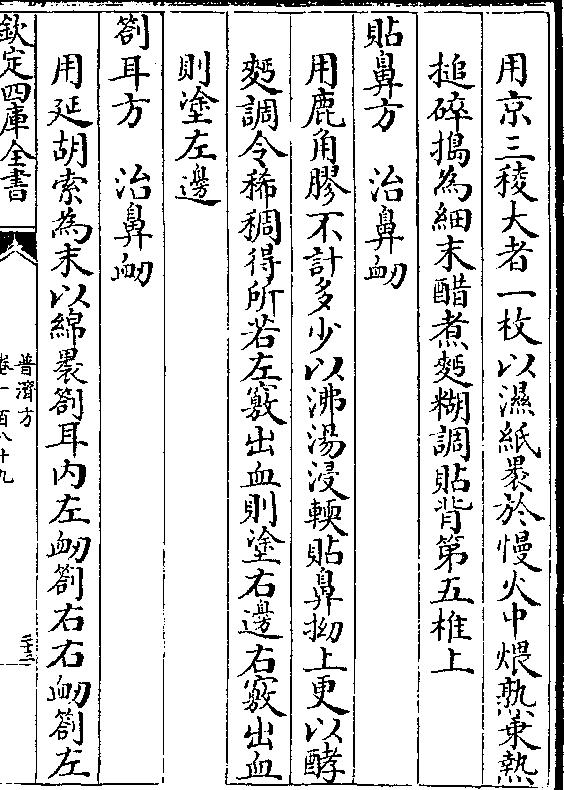 用京三稜大者一枚以濕紙褁於慢火中煨熟乗熟
搥碎搗為細末醋煮麫糊調貼背第五椎上
貼鼻方　治鼻衂
用鹿角膠不計多少以沸湯浸輭貼鼻拗上更以酵
麫調令稀稠得所若左竅出血則塗右邊右竅出血
則塗左邊
劄耳方　治鼻衂
用延胡索為末以綿褁劄耳内左衂劄右右衂劄左
欽定四庫全書
普濟方
卷一百八十九
三十三